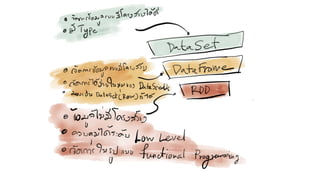 จัดการข้อมูลแบบมีโครงสร้างได้ดี
มี Type
DataSet
จัดการข้อมูลแบบมีโครงสร้าง
DataFrame
RDD
ข้อมูลไม่มีโครงสร้าง
ควบคุมได้ระดับ Low Level
จัดการในรูปแบบ functional Programming